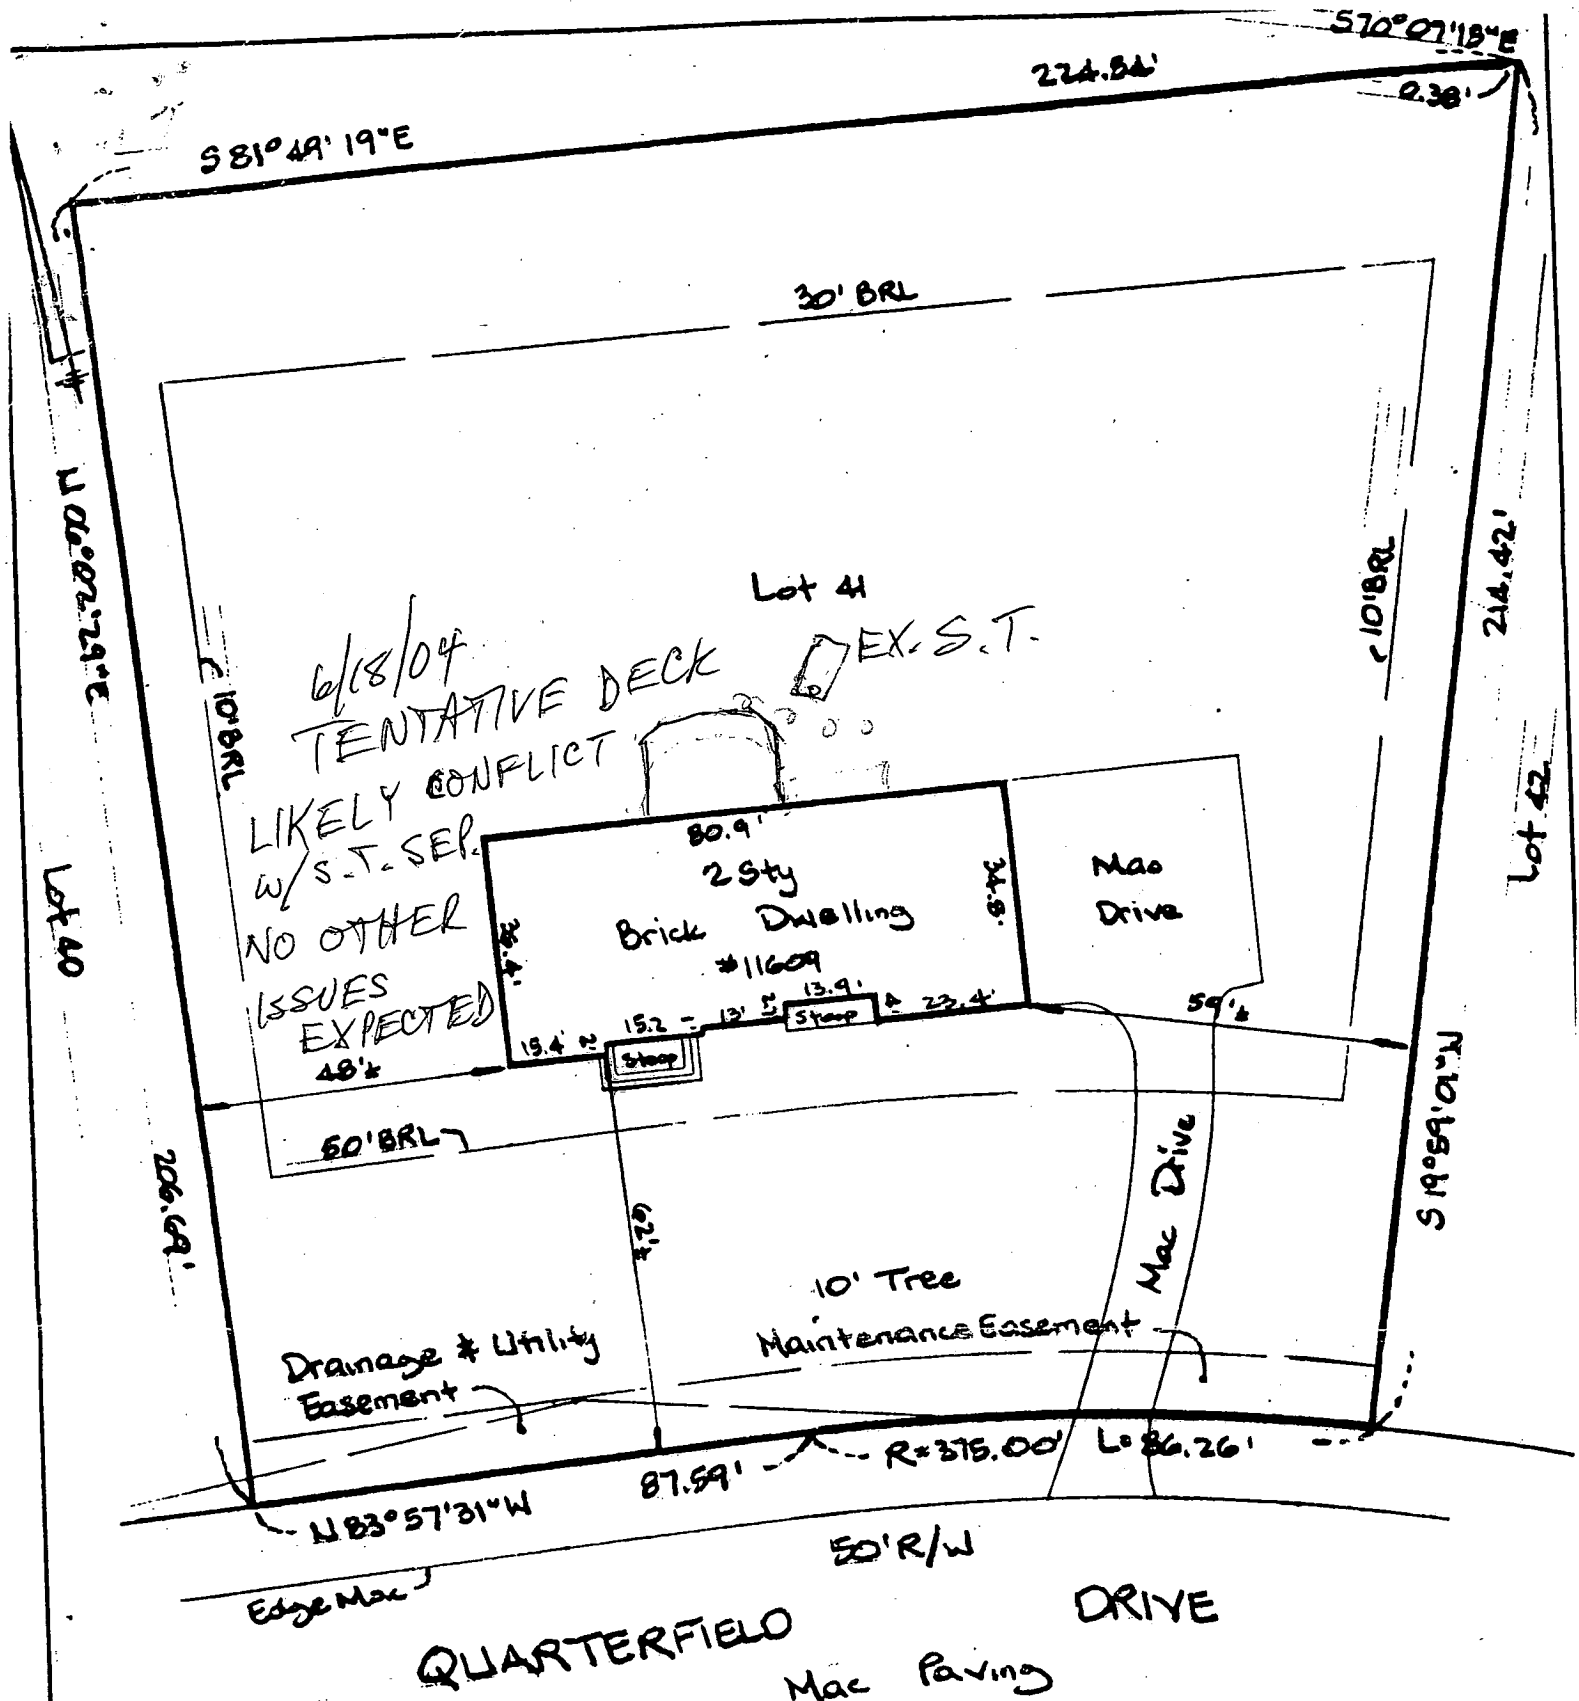 S70°07'18"E
224.84'
0.38'
S81°49'19"E
30' BRL
N06°02'29"E
10'BRL
214.42'
Lot 41
6/18/04
TENTATIVE DECK
LIKELY CONFLICT
W/ S.T. SEP.
NO OTHER
ISSUES
EXPECTED
EX. S.T.
10'BRL
Lot 42
Lot 40
80.9'
2 Sty
Brick Dwelling
#11609
34.8'
Mac
Drive
13.9'
15.4'
15.2
13'
Stoop
23.4'
Stoop
48'±
59'±
50'BRL
S19°59'01"W
206.69'
62'±
Mac Drive
10' Tree
Maintenance Easement
Drainage & Utility
Easement
87.59'
R=375.00' L=86.26'
N83°57'31"W
50'R/W
Edge Mac
QUARTERFIELD DRIVE
Mac Paving